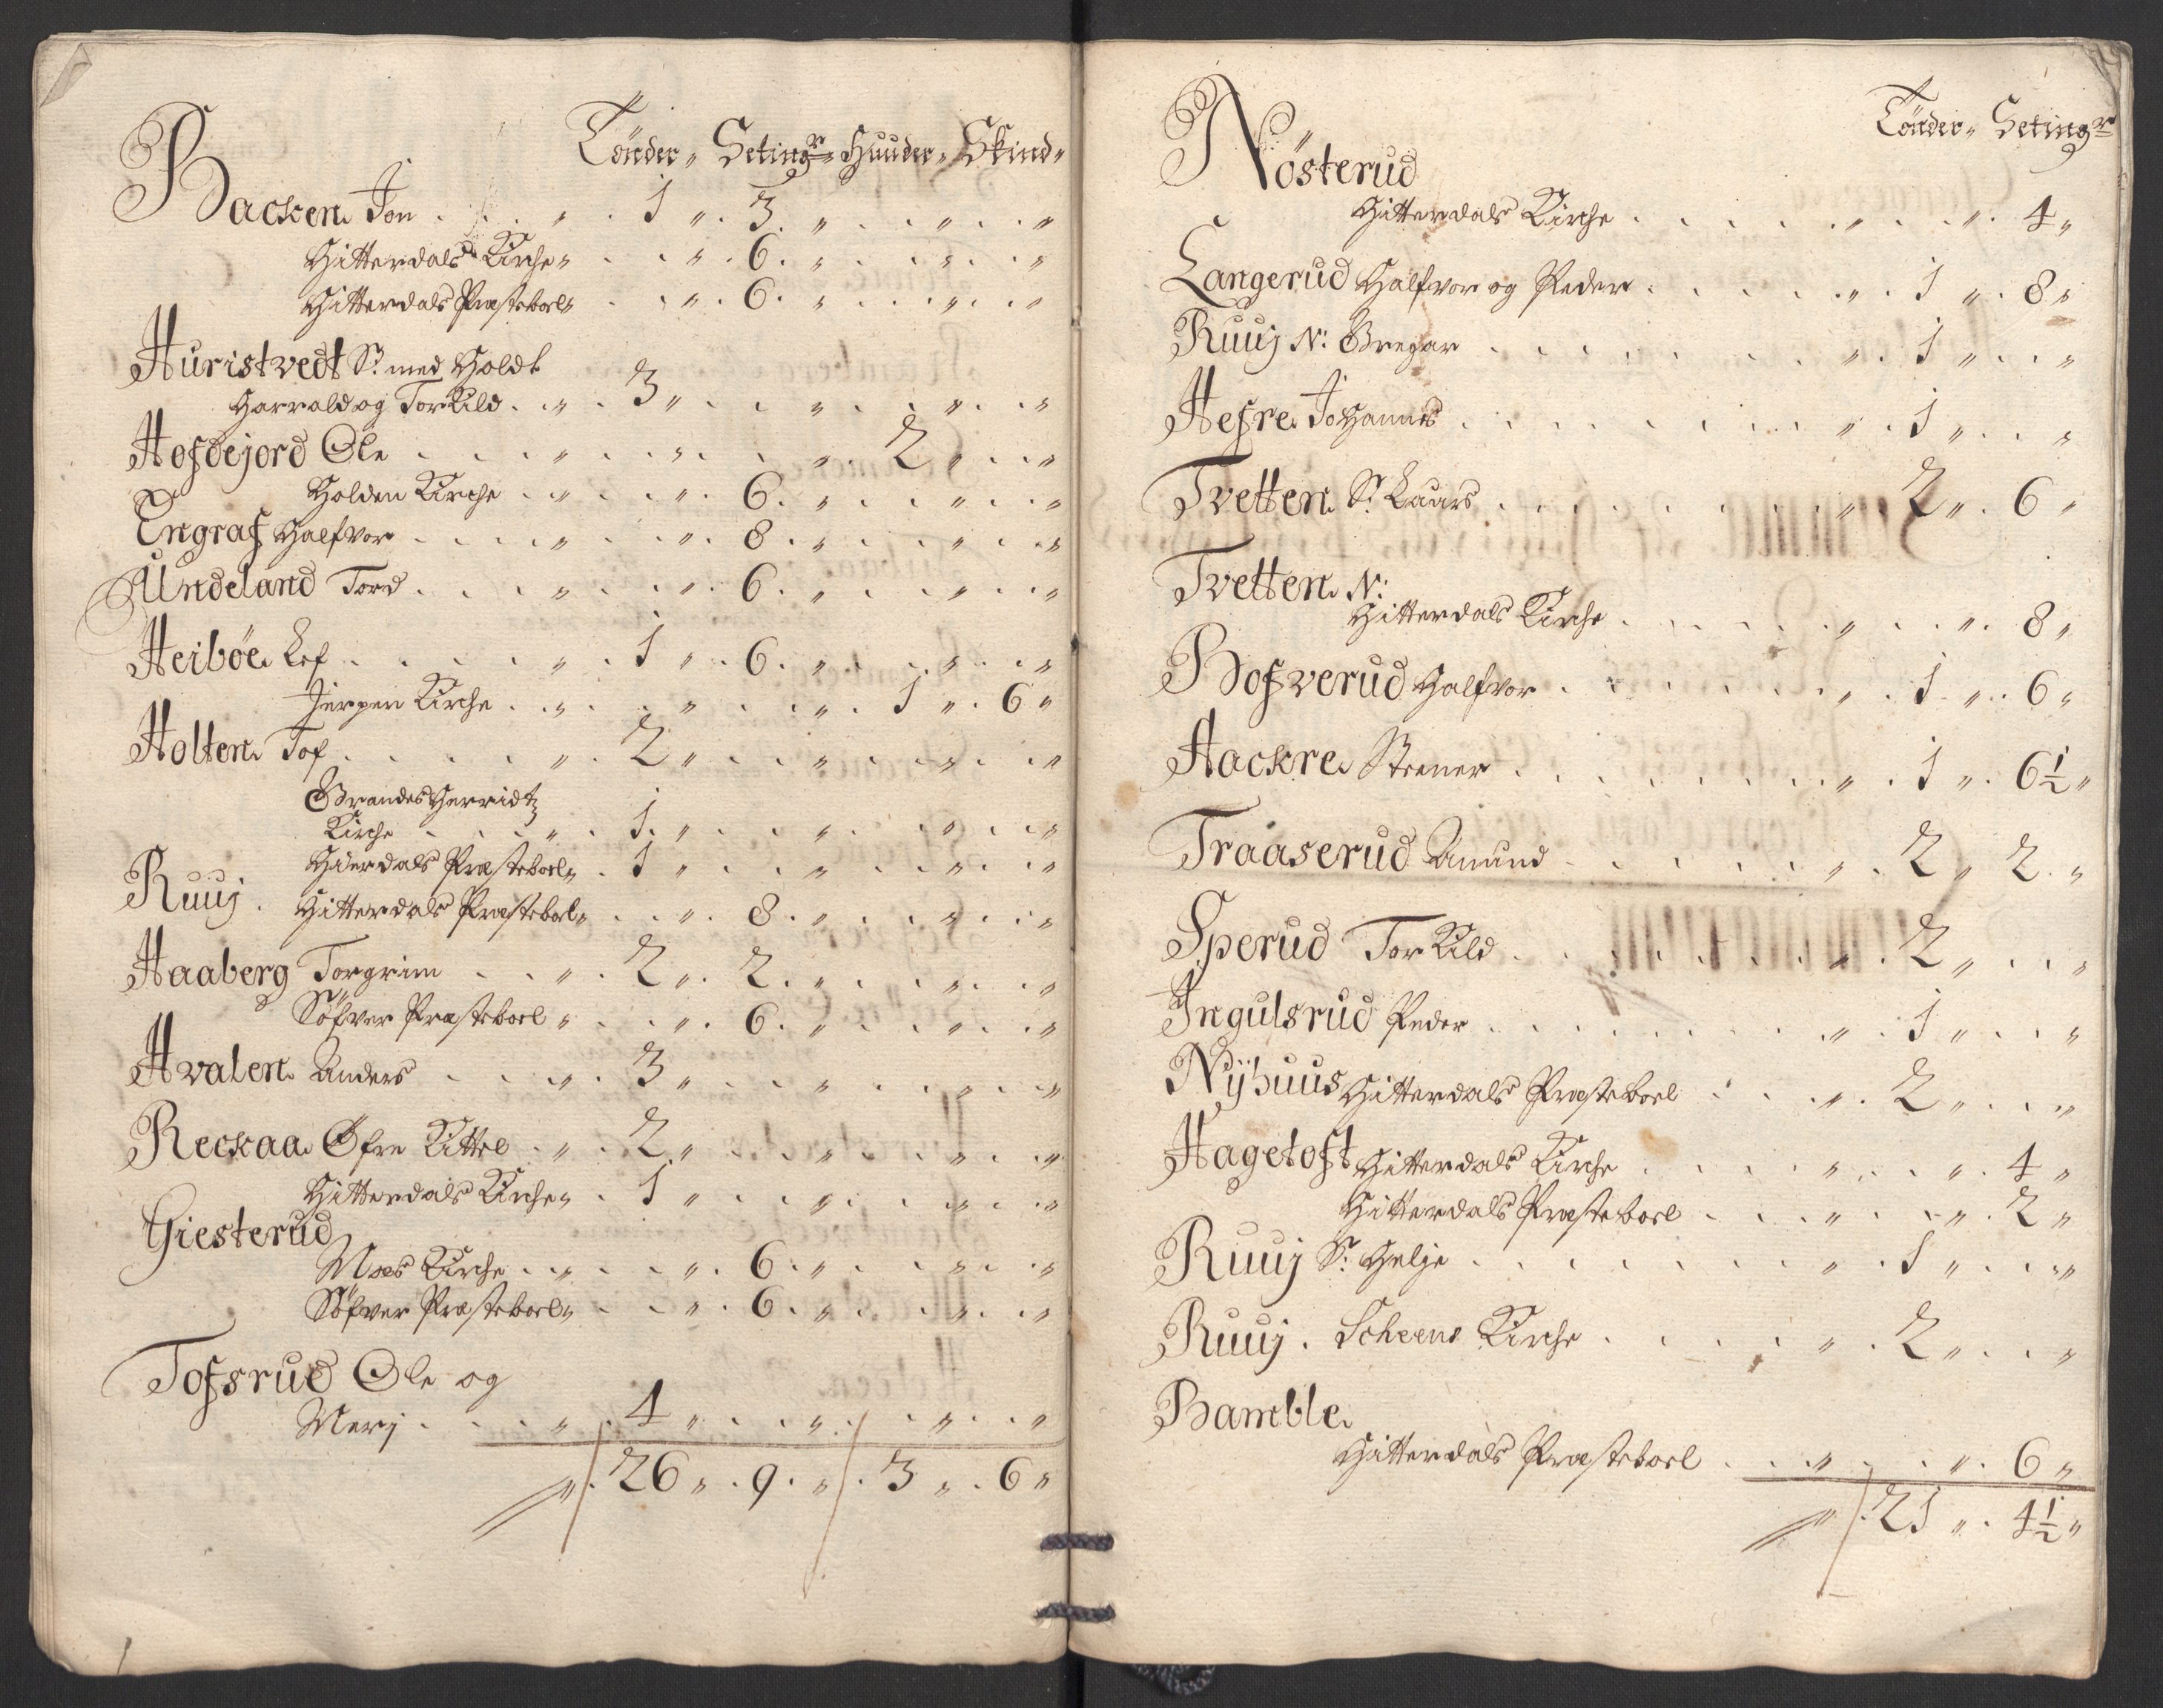 Tönder „ Setingr „ Huuder „ Skind „
Backen Jon . . . „ . 1 „ . 3 . „ . . „ . . „
Hitterdals Kirche „ . . „ . 6 . „ . . „ . . „
Hitterdals Præsteboel „ . . „ . 6 . „ . . „ . . „
Huristvedt S: med Holdt
Harrald og Torkild . . „ . 3 „ . . „ . . „ . . „
Hofdejord Ole . . . „ . . „ . . „ . 2 „ . . „
Holden Kirche . . „ . . „ . 6 . „ . . „ . . „
Engraf Halfvor . . . . „ . . „ . 8 . „ . . „ . . „
Undeland Tord . . . „ . . „ . 6 . „ . . „ . . „
Heibøe Lef . . . . „ . 1 „ . 6 . „ . . „ . . „
Jerpen Kirche . . „ . . „ . . „ . 1 „ . 6 „
Holten Tof . . . . „ . 2 „ . . „ . . „ . . „
Brandes Herridtz
Kirche . . . „ . 1 . „ . . „ . . „ . . „
Hierdals Præsteboel „ . 1 „ . . „ . . „ . . „
Ruuj . Hitterdals Præsteboel „ . . „ . 8 . „ . . „ . . „
Haaberg Torgrim . . „ . 2 „ . 2 . „ . . „ . . „
Söfver Præsteboel „ . . „ . 6 . „ . . „ . . „
Hvalen Anders . . . „ . 3 „ . . „ . . „ . . „
Reckaa Øfre Kittel . „ . 2 „ . . „ . . „ . . „
Hitterdals Kirche „ . 1 „ . . „ . . „ . . „
Giesterud
Moes Kirche . . „ . . „ . 6 . „ . . „ . . „
Söfver Præsteboel „ . . „ . 6 . „ . . „ . . „
Tofsrud Ole og
Merj . . . „ . 4 „ . . „ . . „ . . „
„ . 26 „ . 9 . „ . 3 „ . 6 „
Tönder „ Setingr
Nösterud
Hitterdals Kirche . . . . „ . . „ . 4 „
Langerud Halfvor og Peder . . . . „ . 1 „ . 8 „
Ruuj N: Gregar . . . . . . „ . 1 „ . . „
Hefre Johannes . . . . . . „ . 1 „ . . „
Tvetten S: Laars . . . . . . „ . 2 „ . 6 „
Tvetten N:
Hitterdals Kirche . . . . „ . . „ . 8 „
Bofverud Halfvor . . . . . „ . 1 „ . 6 „
Hackre Steener . . . . . . „ . 1 „ . 6½ „
Traaserud Amund . . . . . „ . 2 „ 2 . „
Sperud Torkild . . . . . . „ . 2 „ . . „
Ingulsrud Peder . . . . . . „ . 1 „ . . „
Nÿhuus Hitterdals Præsteboel . . „ . 2 „ . . „
Hagetoft Hitterdals Kirche . . . . „ . . „ . 4 „
Hitterdals Præsteboel . . . „ . . „ . 2 „
Ruuj S: Helje . . . . . . „ . 1 „ . . „
Ruuj . Scheens Kirche . . . . „ . 2 „ . . „
Bamble
Hitterdals Præsteboel . . „ . . „ . 6 „
„ . 21 „ . 4½ „